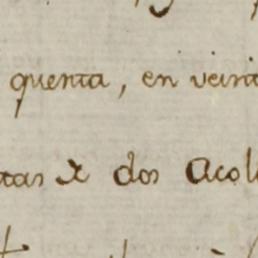 quenta, en veint
tas y dos Acol